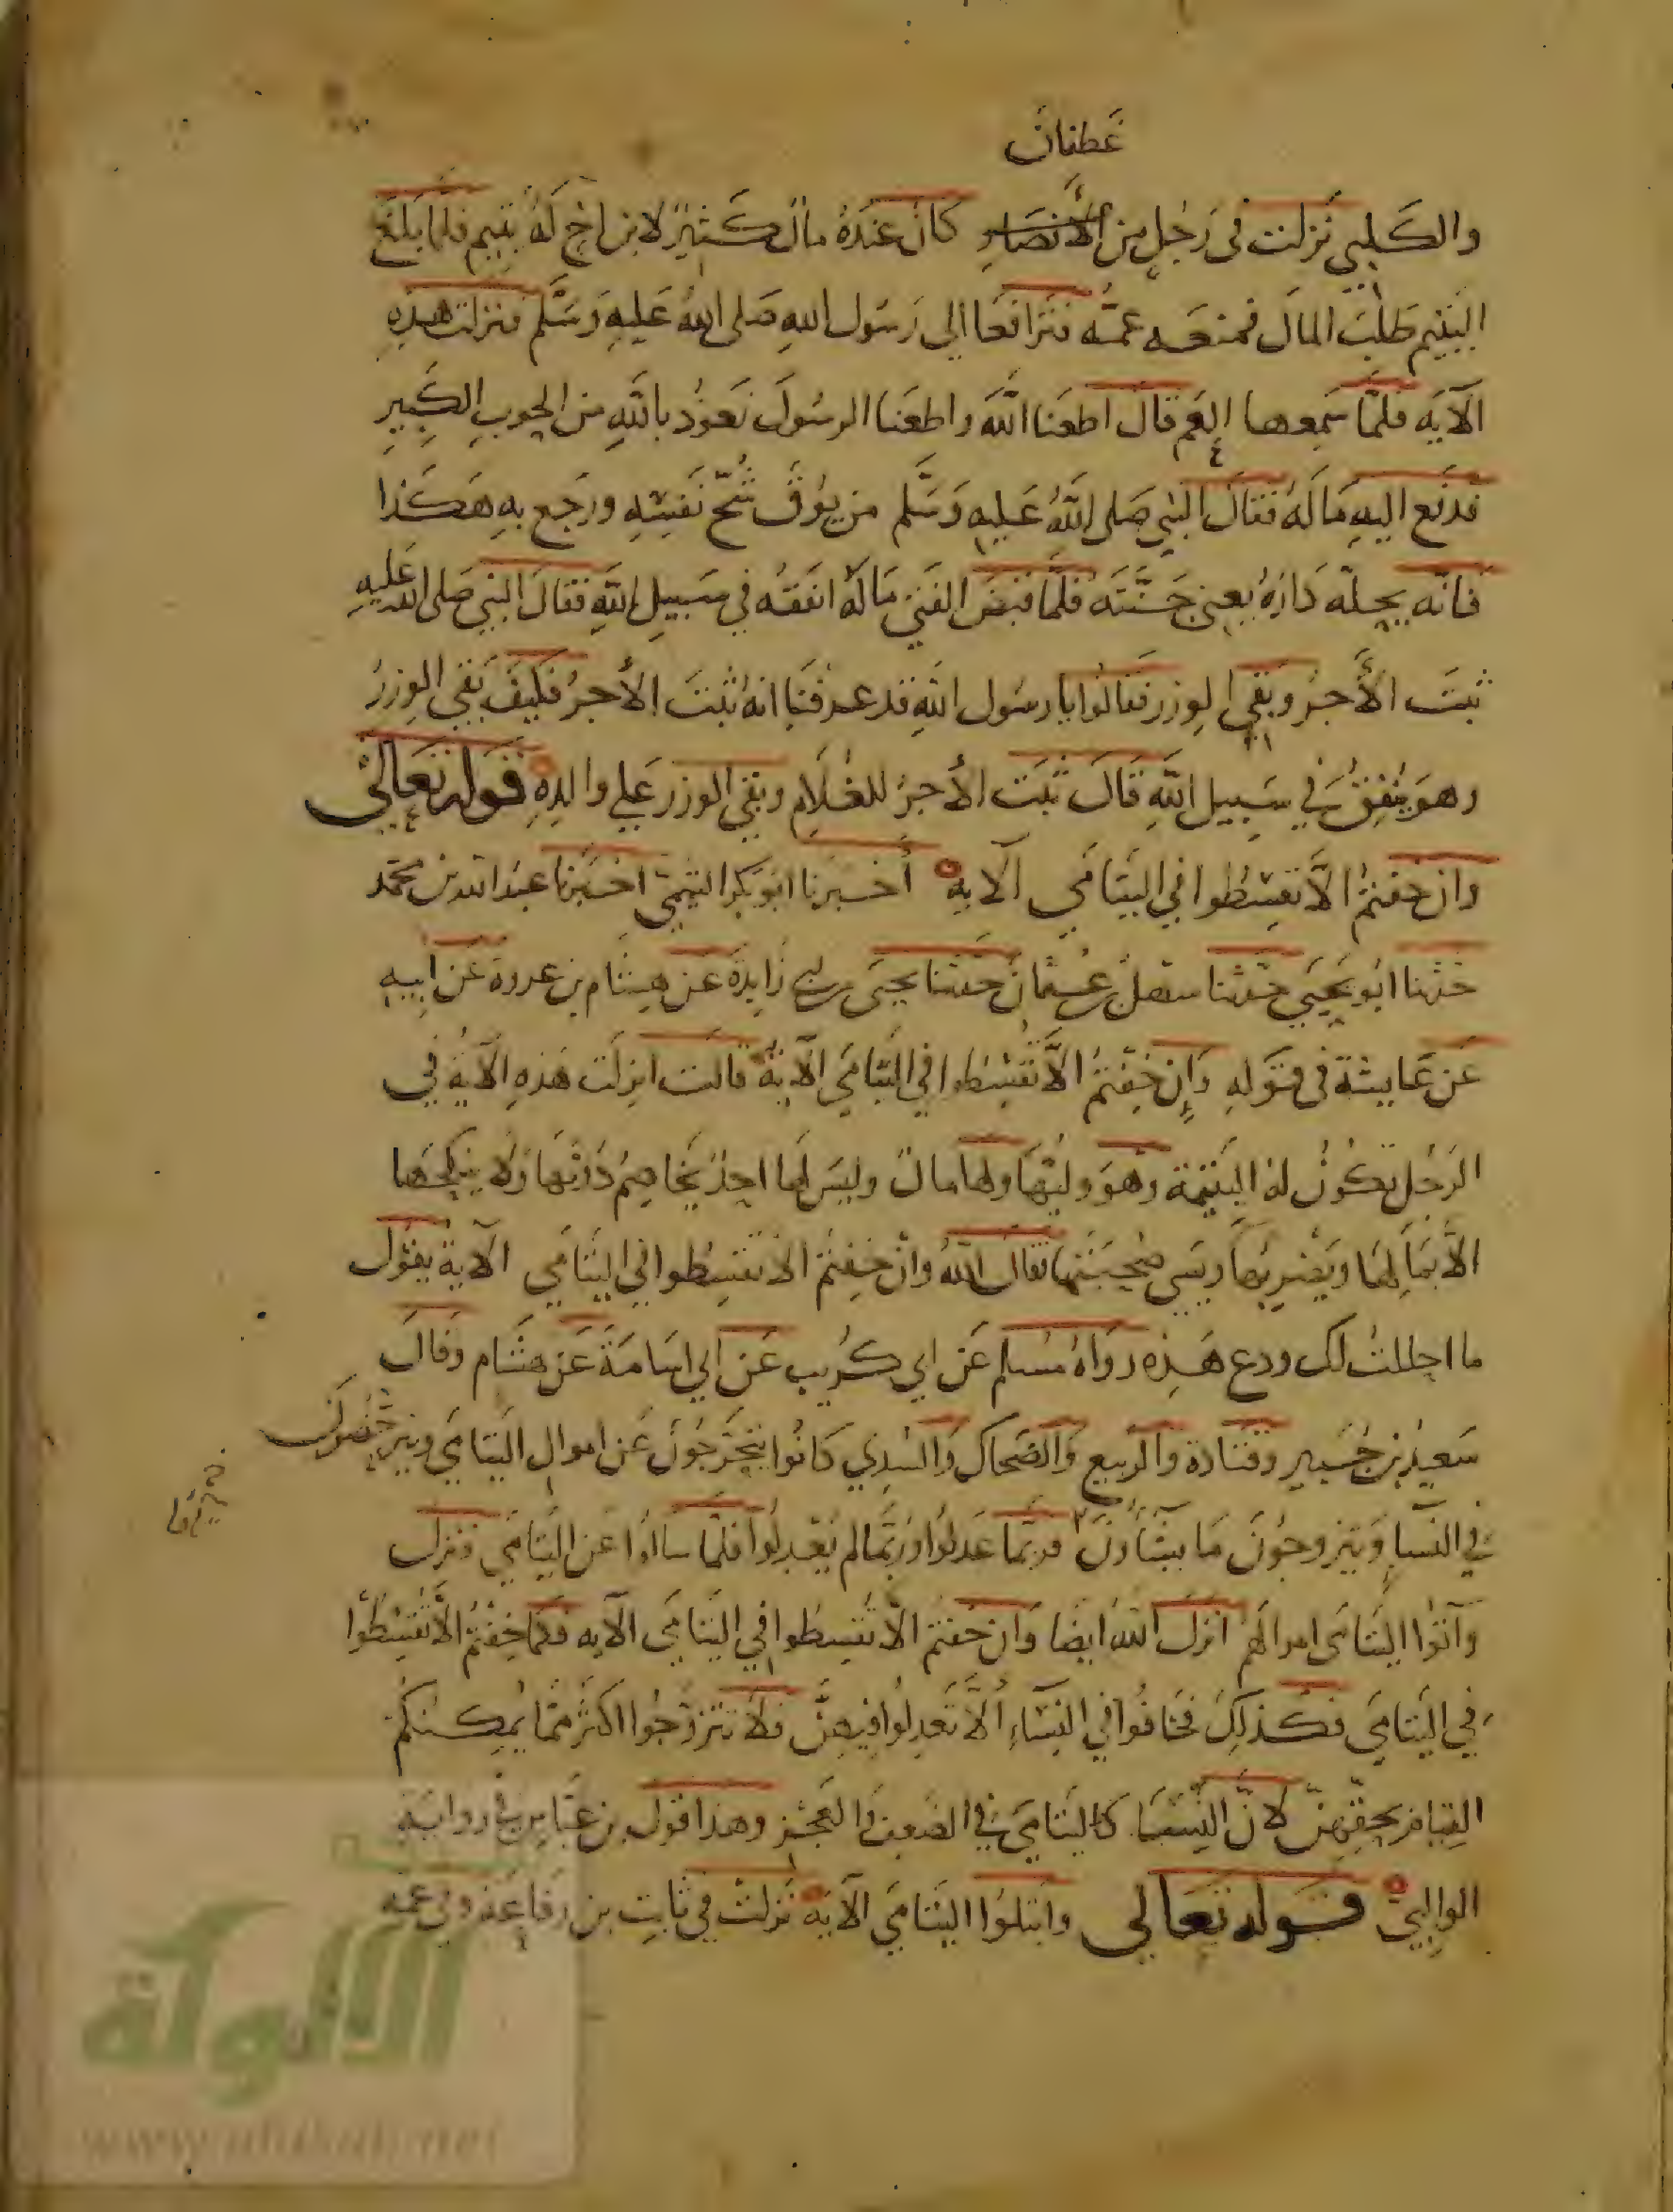 غطفان
والكلبي نزلت في رجل من الأنصار كان عنده مال كثير لابن اخ له يتيم فلما بلغ
اليتيم طلب المال فمنعه عمه فترافعا الي رسول الله صلى الله عليه وسلم فنزلت هذه
الآية فلما سمعها العم قال اطعنا الله واطعنا الرسول نعوذ بالله من الحوب الكبير
فدفع اليه ماله فقال النبي صلى الله عليه وسلم من يوق شح نفسه ورجع به هكذا
فانه يحل داره يعني جنته فلما قبض الفتى ماله انفقه في سبيل الله فقال النبي صلى الله عليه
ثبت الأجر وبقي الوزر فقالوا يا رسول الله قد عرفنا انه ثبت الأجر فكيف بقي الوزر
وهو ينفق في سبيل الله قال ثبت الأجر للغلام وبقي الوزر علي والده قوله تعالى
وان خفتم الا تقسطوا في اليتامى الآية أخبرنا ابو بكر التميمي اخبرنا عبد الله بن محمد
حدثنا ابو يحيى حدثنا سهل بن عثمان حدثنا يحيى بن ابي زايدة عن هشام بن عروة عن ابيه
عن عايشة في قوله وإن خفتم الا تقسطوا في اليتامى الآية قالت انزلت هذه الآية في
الرجل تكون له اليتيمة وهو وليها ولها مال وليس لها احد يخاصم دونها ولا ينكحها
الا بمالها ويضر بها ويسي صحبتها فقال الله وان خفتم الا تقسطوا في اليتامى الآية يقول
ما احللت لك ودع هذه رواه مسلم عن ابي كريب عن ابي اسامة عن هشام وقال
سعيد بن جبير وقتادة والربيع والضحاك والسدي كانوا يتحرجون عن اموال اليتامى ويترخصون
في النسا ويتزوجون ما يشاؤن فربما عدلوا وربما لم يعدلوا فلما سالوا عن اليتامى فنزل
وآتوا اليتامى اموالهم انزل الله ايضا وان خفتم الا تقسطوا في اليتامى الآيه فكما خفتم الا تقسطوا
في اليتامى فكذلك فخافوا في النساء ألا تعدلوا فيهن فلا تتزوجوا اكثر مما يمكنكم
القيام بحقهن لان النسا كاليتامى في الضعف والعجز وهذا قول بن عباس في رواية
الوالبي قوله تعالى وابتلوا اليتامى الآية نزلت في ثابت بن رفاعة وفي عمه
الألوكة
www.alukah.net